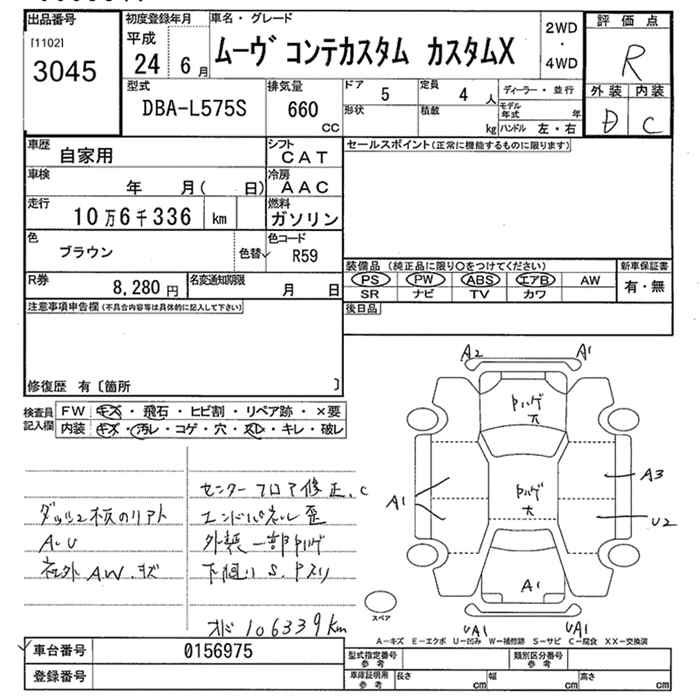 出品番号
[1102]
3045
初度登録年月
平成
24 6月
車名・グレード
ムーヴ コンテカスタム カスタムX
2WD
・
4WD
評価点
R
外装 内装
D C
型式
DBA-L575S
排気量
660
CC
ドア 5
定員 4 人
ディーラー・並行
形状
積載 kg
モデル年式 年
ハンドル 左・右
車歴 自家用
シフト CAT
セールスポイント(正常に機能するものに限ります)
車検 年 月( 日)
冷房 AAC
走行 10万6千336 km
燃料 ガソリン
色 ブラウン
色替
色コード R59
装備品 (純正品に限り○をつけてください)
新車保証書
PS PW ABS エアB AW
有・無
SR ナビ TV カワ
R券 8,280 円
名変通知期限 月 日
後日品
注意事項申告欄(不具合内容等は具体的に記入して下さい)
修復歴 有〔箇所 〕
検査員記入欄
FW キズ・飛石・ヒビ割・リペア跡・×要
内装 キズ・汚レ・コゲ・穴・スレ・キレ・破レ
センターフロア修正.C
エンドパネル歪
外装一部ハゲ
下廻りS.
A-U
社外AW.キズ
オド106339km
A2 A1
ハゲ
大
A1
A3
U2
A1
UA1 UA1
スペア
A-キズ E-エクボ U-凹み W-補修跡 S-サビ C-腐食 XX-交換済
車台番号 0156975
登録番号
型式指定番号 参考
類別区分番号 参考
車庫証明用 参考
長さ cm
幅 cm
高さ cm